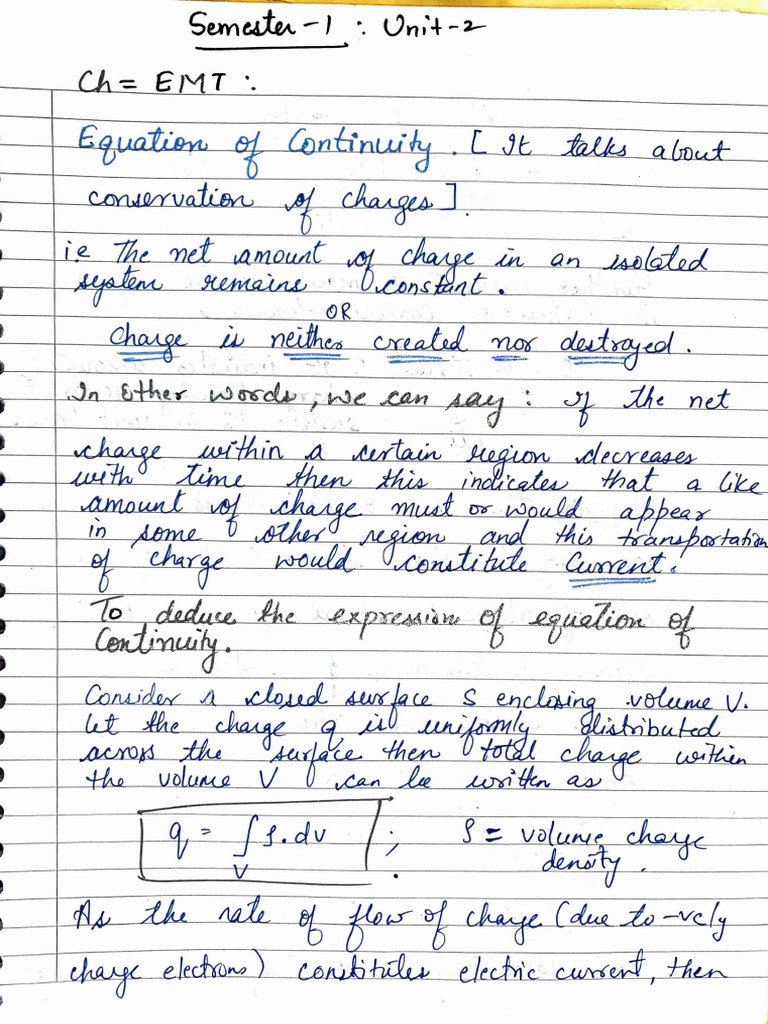 Semester-1 : Unit-2
Ch = EMT :
Equation of Continuity. [ It talks about
conservation of charges].
i.e The net amount of charge in an isolated
system remains constant.
OR
Charge is neither created nor destroyed.
In Other words, we can say : if the net
charge within a certain region decreases
with time then this indicates that a like
amount of charge must or would appear
in some other region and this transportation
of charge would constitute Current.
To deduce the expression of equation of
Continuity.
Consider a closed surface S enclosing volume V.
let the charge q is uniformly distributed
across the surface then total charge within
the volume V can be written as
q = ∫ ρ.dv ; ρ = volume charge
V density.
As the rate of flow of charge (due to -vely
charge electrons) constitutes electric current, then